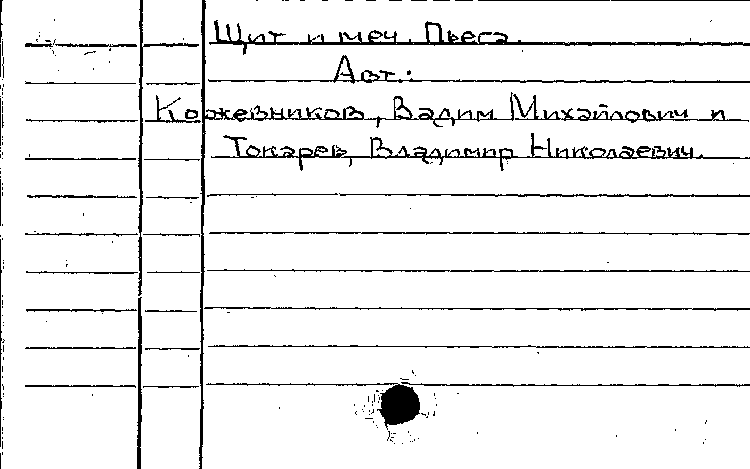 Щит и меч. Пьеса.
Авт.:
Кожевников, Вадим Михайлович и
Токарев, Владимир Николаевич.